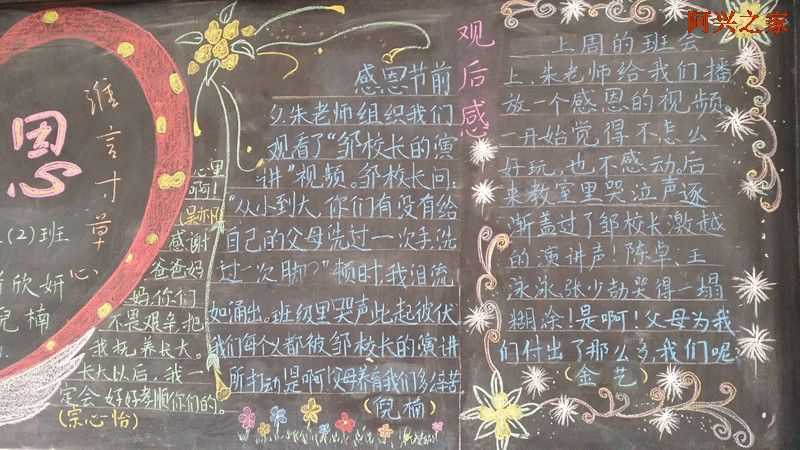 阿兴之家
恩
谁言寸草心
(2)班
欣妍
倪楠
心里
啊!
吴亦凡
感谢
爸爸妈
妈,你们
不畏艰辛,把
我抚养长大。
长大以后,我一
定会好好孝顺你们的。
(宗心怡)
感恩节前
夕,朱老师组织我们
观看了“邹校长的演
讲”视频。邹校长问:
“从小到大,你们有没有给
自己的父母洗过一次手,洗
过一次脚?”顿时,我泪流
如涌出。班级里哭声此起彼伏
我们每个人都被邹校长的演讲
所打动,是啊!父母养育我们多辛苦
(倪楠)
观后感
上周的班会
上,朱老师给我们播
放一个感恩的视频。
一开始觉得不怎么
好玩,也不感动。后
来教室里哭泣声逐
渐盖过了邹校长激越
的演讲声!陈卓、王
泳泳、张少勃哭得一塌
糊涂!是啊!父母为我
们付出了那么多,我们呢
(金艺)